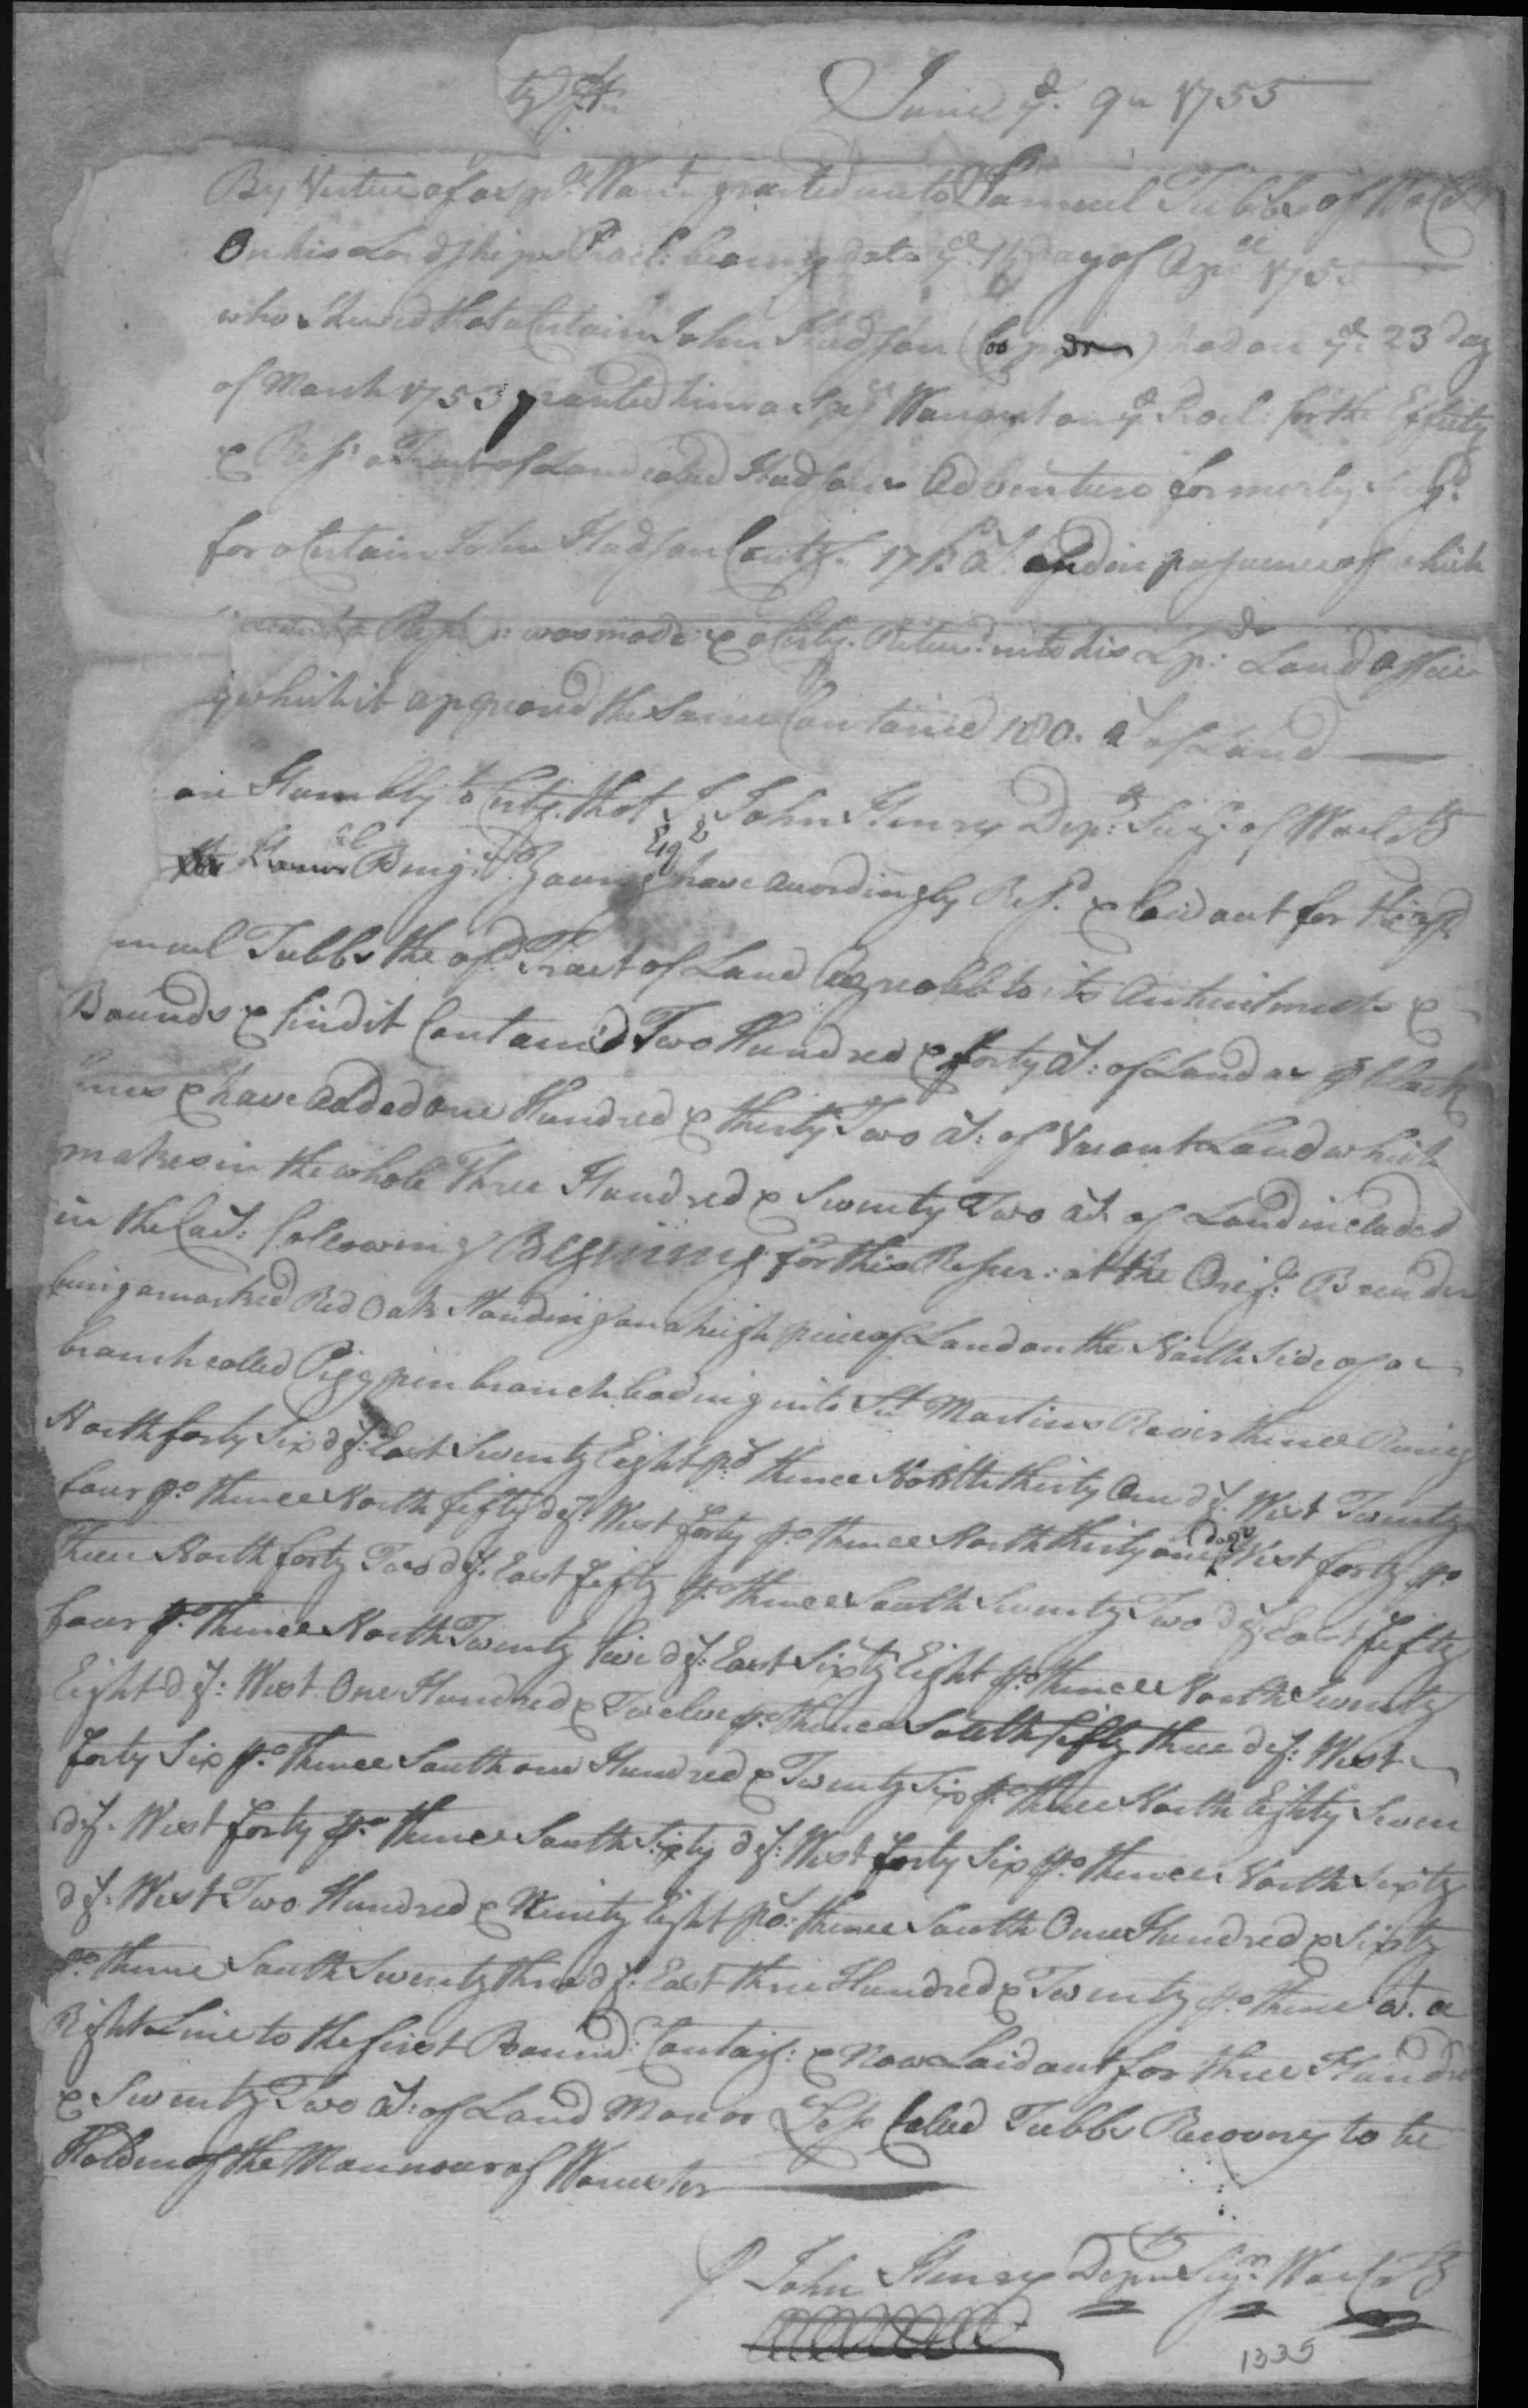 June ye. 9th 1755
By Vertue of a spl. Warrt. granted unto Samuel Tubbs of Wor Co
On his Lordships bearing date ye. day of Apr 1755
who Shewed that a Certain John Hudson had on ye. 23 day
of March 1753 granted him a Spl. Warrant on ye. for the
& Resy. a Tract of Land called Hudsons Adventure formerly Survd.
for a Certain John Hudson Contg. 171. as. and in pursuance of which
Resy. was made & a Certy. Returd. into his Lps. Land Office
by which it appeared the Same Contained 180. as. of Land
are Humbly to Certy. that I John Henry Depy. Survr. of Worl. Co
Benj. Young Esqr have accordingly Resd. & laid out for the sd.
muel Tubbs the afsd. Tract of Land Agreable to its Antient mets &
Bounds & find it Contained Two Hundred & forty as: of Land as pr. black
lines & have added one Hundred & thirty Two as: of Vacant Land which
makes in the whole Three Hundred & Seventy Two as. of Land included
in the Cos: following Begining for this Resur: at the Origl. Bounder
being a marked Red Oak Standing on a high piece of Land on the North Side of a
branch called Piggpen branch leading into St. Martins River thence Runing
North forty Six dg: East Seventy Eight po. thence North thirty One dg. West Twenty
four po. thence North fifty dg. West forty po. thence North thirty one degs West forty po.
then North forty Two dg. East fifty po. thence South Seventy Two dg East fifty
four po. thence North Twenty five dg: East Sixty Eight po. thence North Seventy
Eight dg: West One Hundred & Twelve po. thence South fifty three dg: West
forty Six po. thence South one Hundred & Twenty Six po. thence North Eighty Seven
dg. West forty po. thence South Sixty dg: West forty Six po. thence North Sixty
dg. West Two Hundred & Ninety Eight po: thence South One Hundred & Sixty
po. thence South Seventy three dg: East three Hundred & Twenty po. thence wt. a
Right Line to the first Bound: Containg: & now Laid out for three Hundred
& Seventy Two as: of Land More or Less Called Tubbs Recovery to be
Holden of the Mannour of Worcester
pr John Henry Depy Sur. Worl. Co
1335